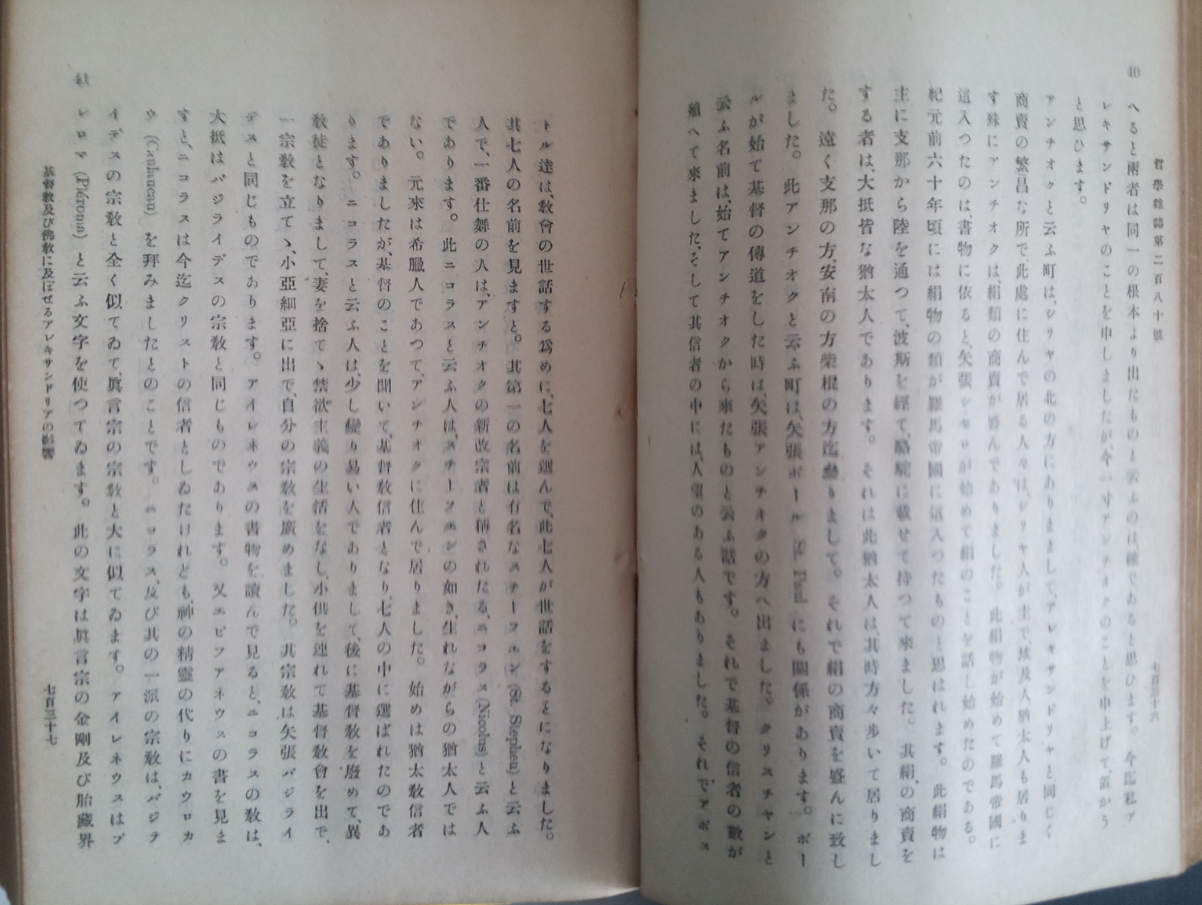 哲學雜誌第二百八十號
七百三十六
40
へると兩者は同一の根本より出たものと云ふのは確であると思ひます。今迄私ア
レキサンドリヤのことを申しましたが今一寸アンチオクのことを申上げて置かう
と思ひます。
アンチオクと云ふ町は、シリヤの北の方にありまして、アレキサンドリヤと同じく
商賣の繁昌な所で此處に住んで居る人々は、シリヤ人が主で埃及人猶太人も居りま
す殊にアンチオクは、絹類の商賣が盛んでありました。此絹物が始めて羅馬帝國に
這入つたのは、書物に依ると、矢張シセリが始めて絹のことを話し始めたのである。
紀元前六十年頃には絹物の類が羅馬帝國に這入つたものと思はれます。此絹物は
主に支那から陸を通つて、波斯を經て、駱駝に載せて持つて來ました。其絹の商賣を
する者は、大抵皆な猶太人であります。それは此猶太人は其時方々歩いて居りまし
た。遠く支那の方、安南の方柴棍の方迄參りまして。それで絹の商賣を盛んに致し
ました。此アンチオクと云ふ町は、矢張ポール(St. Paul)にも關係があります。ポー
ルが始て基督の傳道をした時は、矢張アンチオクの方へ出ました。クリスチャンと
云ふ名前は、始てアンチオクから來たものと云ふ話です。それで基督の信者の數が
殖へて來ました、そして其信者の中には、人望のある人もありました。それでアポス
トル達は、敎會の世話する爲めに、七人を選んで、此七人が世話をするとになりました。
其七人の名前を見ますと。其第一の名前は有名なステーフエン(St. Stephen)と云ふ
人で、一番仕舞の人は、アンチオクの新改宗者と稱されたる、ニコラス(Nicolas)と云ふ人
であります。此ニコラスと云ふ人は、ステーフエンの如き、生れながらの猶太人では
ない。元來は希臘人であつて、アンチオクに住んで居りました。始めは猶太敎信者
でありましたが、基督のことを聞いて、基督敎信者となり、七人の中に選ばれたのであ
ります。ニコラスと云ふ人は、少し變り易い人でありまして、後に基督敎を廢めて、異
敎徒となりまして、妻を捨てゝ禁欲主義の生活をなし、小供を連れて基督敎會を出で、
一宗敎を立てゝ、小亞細亞に出で、自分の宗敎を廣めました。其宗敎は矢張バジライ
デスと同じものであります。アイレネウスの書物を讀んで見ると、ニコラスの敎は、
大抵はバジライデスの宗敎と同じものであります。又エピフアネウスの書を見ま
すと、ニコラスは今迄クリストの信者としゐたけれども、神の精靈の代りにカウロカ
ウ(Caulaucau)を拜みましたとのことです。ニコラス、及び其の一派の宗敎は、バジラ
イデスの宗敎と全く似てゐて、眞言宗の宗敎と大に似てゐます。アイレネウスはプ
レロマ(Pleroma)と云ふ文字を使つてゐます。此の文字は眞言宗の金剛及び胎藏界
41
基督敎及び佛敎に及ぼせるアレキサンドリアの影響
七百三十七